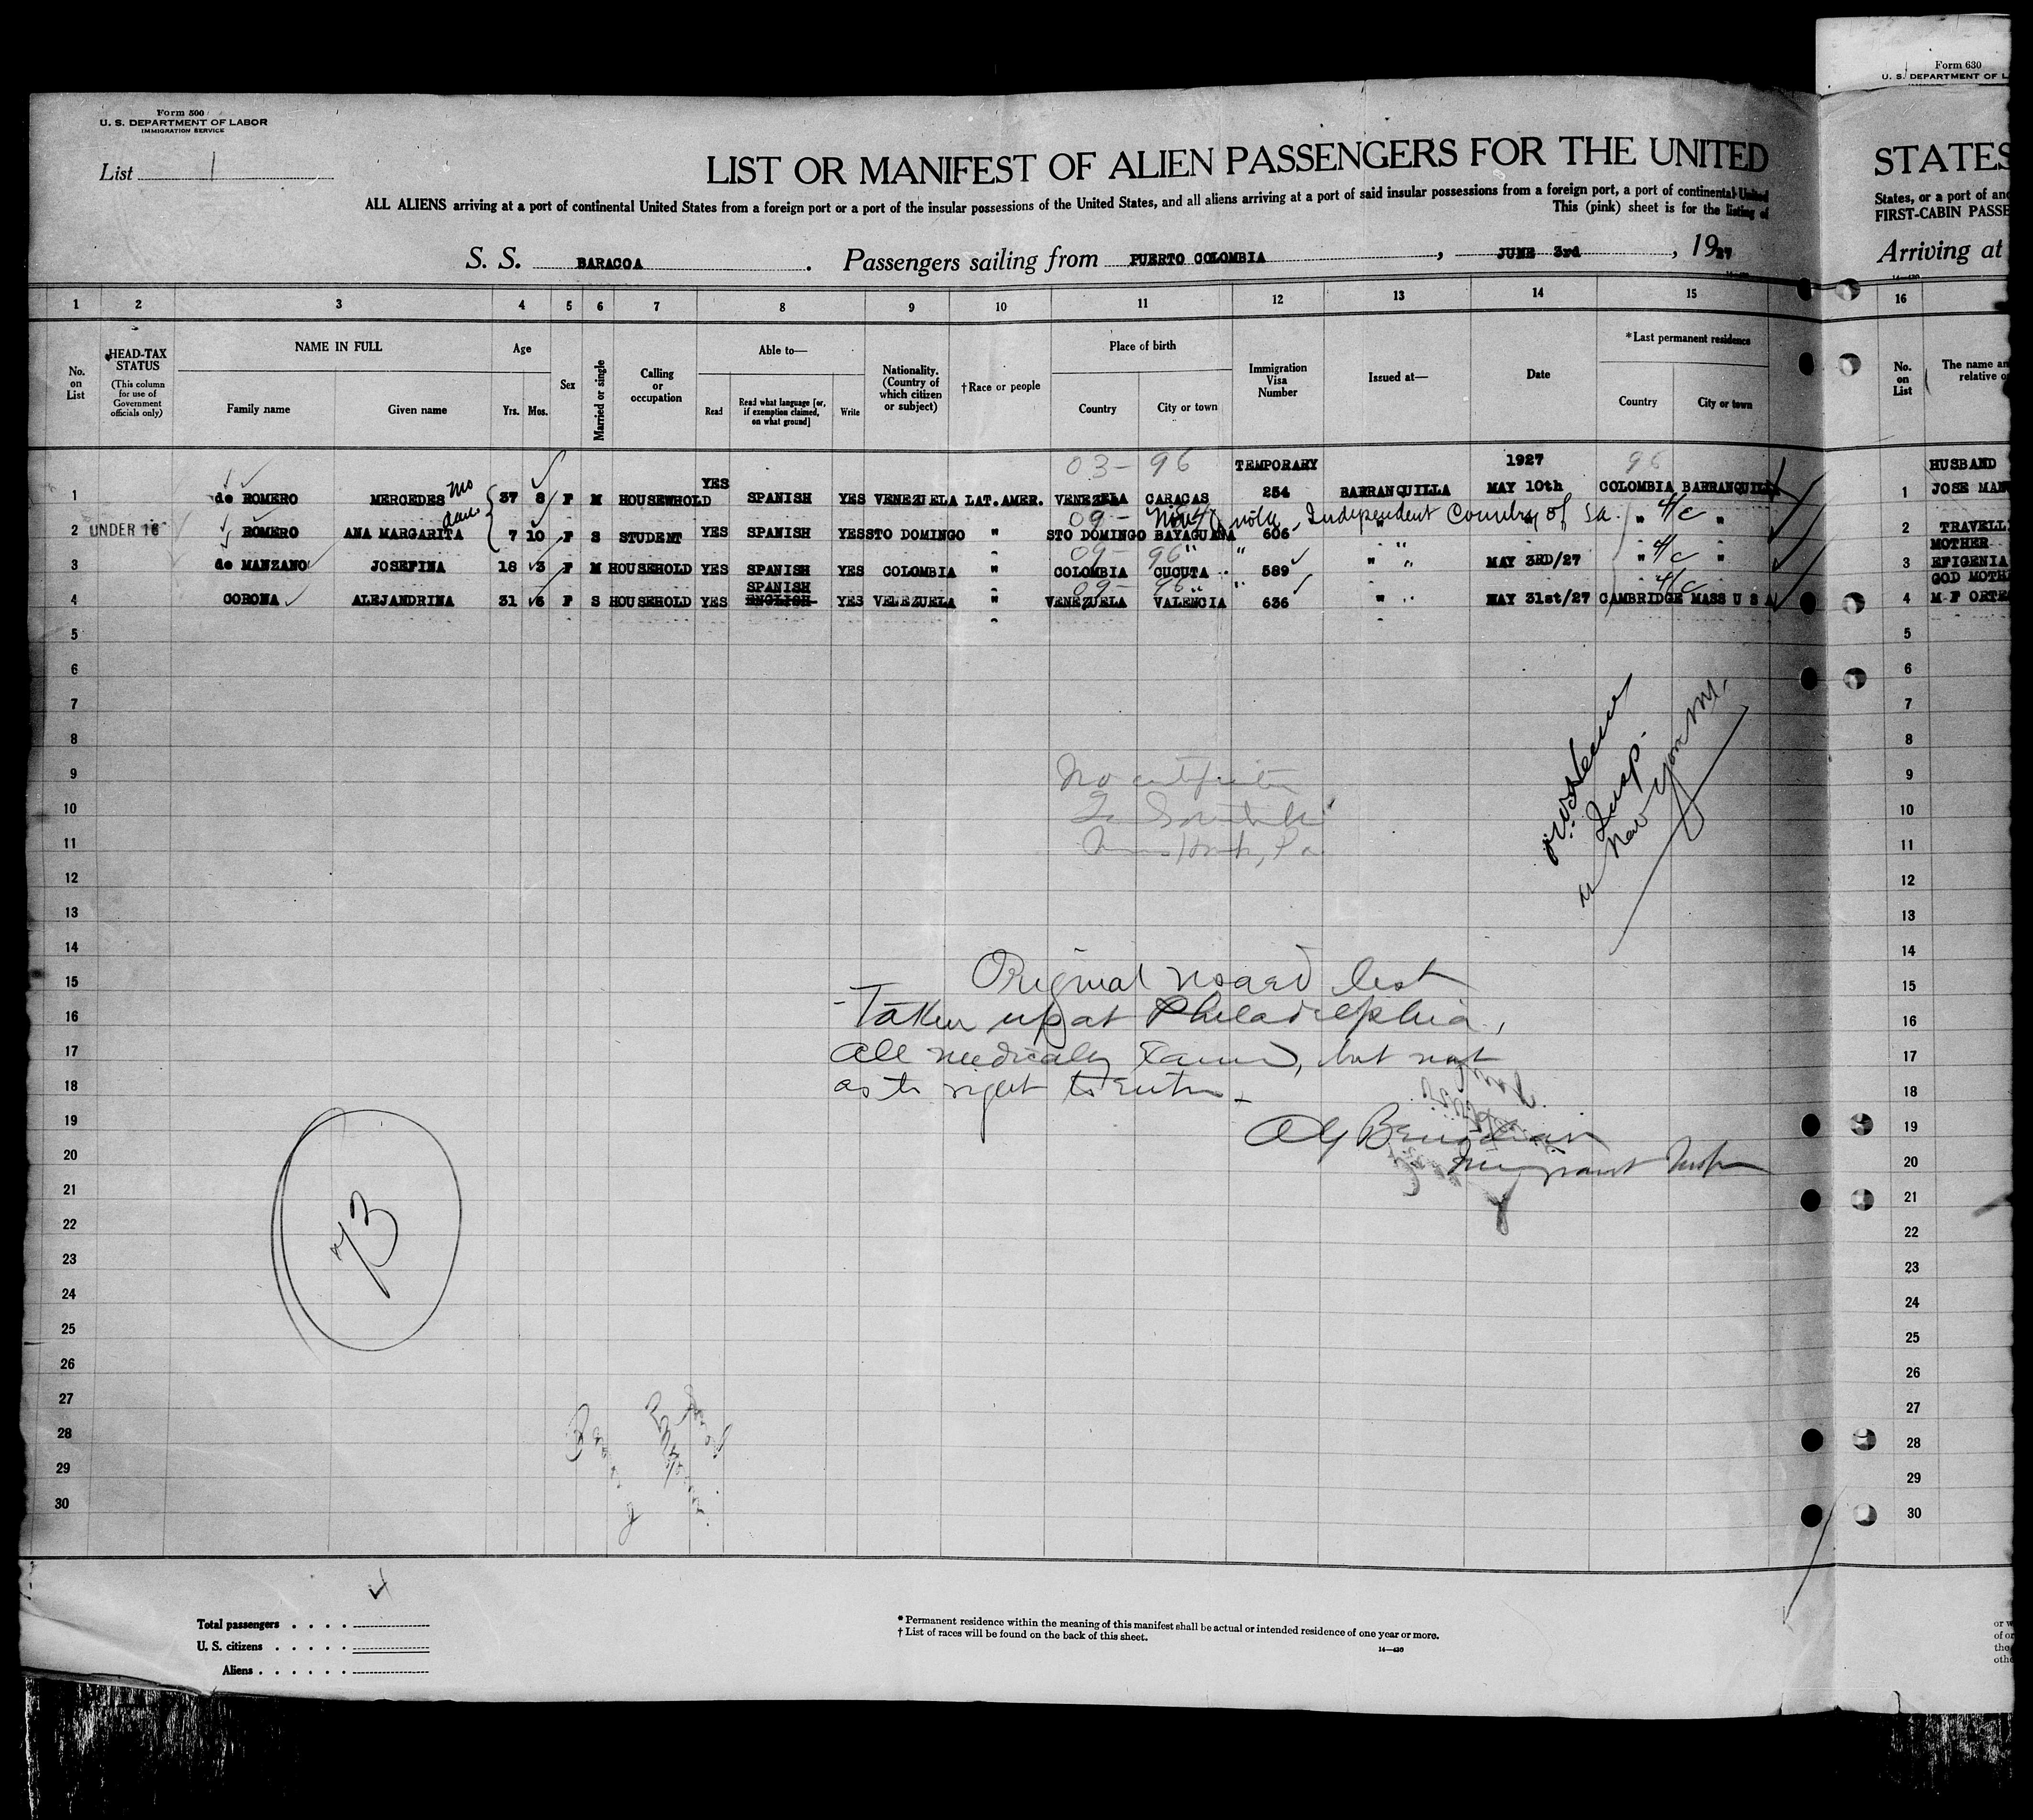 Form 630
U. S. DEPARTMENT OF L
Form 500
U. S. DEPARTMENT OF LABOR
IMMIGRATION SERVICE
List 1
LIST OR MANIFEST OF ALIEN PASSENGERS FOR THE UNITED
STATES
ALL ALIENS arriving at a port of continental United States from a foreign port or a port of the insular possessions of the United States, and all aliens arriving at a port of said insular possessions from a foreign port, a port of continental United
States, or a port of an
This (pink) sheet is for the listing of
FIRST-CABIN PASSE
S. S. BARACOA. Passengers sailing from PUERTO COLOMBIA, JUNE 3rd, 1927
Arriving at
1 2 3 4 5 6 7 8 9 10 11 12 13 14 15 16
No. on List
HEAD-TAX STATUS
(This column for use of Government officials only)
NAME IN FULL
Family name Given name
Age
Yrs. Mos.
Sex
Married or single
Calling or occupation
Able to—
Read
Read what language [or, if exemption claimed, on what ground]
Write
Nationality. (Country of which citizen or subject)
†Race or people
Place of birth
Country City or town
Immigration Visa Number
Issued at—
Date
*Last permanent residence
Country City or town
No. on List
The name an
relative o
03- 96 TEMPORARY 1927 96 HUSBAND
1 de ROMERO MERCEDES mo 37 8 F M HOUSEWHOLD YES SPANISH YES VENEZUELA LAT.AMER. VENEZELA CARACAS 254 BARRANQUILLA MAY 10th COLOMBIA BARRANQUILLA 1 JOSE MAN
09- Independent Country of Sa.
2 UNDER 16 ROMERO ANA MARGARITA dau 7 10 F S STUDENT YES SPANISH YES STO DOMINGO " STO DOMINGO BAYAGUANA 606 " " " 4/c " 2 TRAVELL
09- 96 " " MOTHER
3 de MANZANO JOSEFINA 18 3 F M HOUSEHOLD YES SPANISH YES COLOMBIA " COLOMBIA CUCUTA 589 " " MAY 3RD/27 " 4/c " 3 EFIGENIA
SPANISH 09- 96 " " 4/c GOD MOTH
4 CORONA ALEJANDRINA 31 6 F S HOUSEHOLD YES ENGLISH YES VENEZUELA " VENEZUELA VALENCIA 636 " " MAY 31st/27 CAMBRIDGE MASS U S A 4 M F ORTE
5 5
6 6
7 7
8 8
9 9
10 10
11 11
12 12
13 13
14 14
15 15
16 16
17 17
18 18
19 19
20 20
21 21
22 22
23 23
24 24
25 25
26 26
27 27
28 28
29 29
30 30
No certificate
Pa
Insp.
New York
Original list
Taken up at Philadelphia,
All medically Exam, but not
as to right to Enter
Immigrant Insp
73
Total passengers
U. S. citizens
Aliens
* Permanent residence within the meaning of this manifest shall be actual or intended residence of one year or more.
† List of races will be found on the back of this sheet.
14—430
or w
of or
the
othe